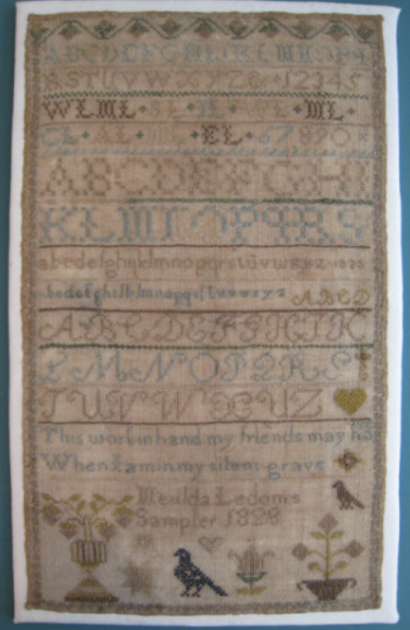 ABCDEFGHIJKLMNOPQ
RSTUVWXYZ & 12345
WL ML ML
CL AL EL 67890
ABCDEFGHI
KLMNOPQRS
abcdefghijklmnopqrstuvwxyz 1828
abcdefghiklmnopqrstuvwxyz ABCD
ABCDEFGHIK
LMNOPQRS
TUVWXYZ
This work in hand my friends may
When I am in my silent grave
Ledoms
Sampler 1828